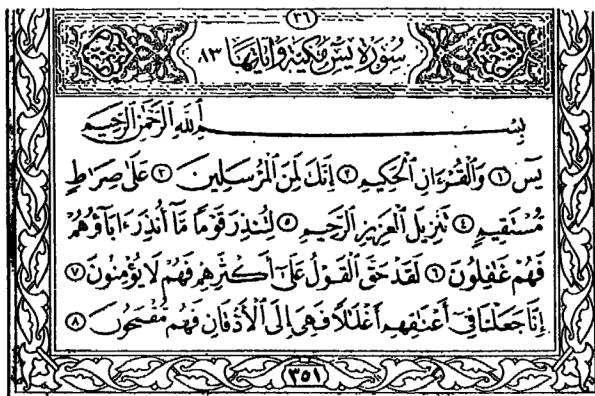 ٣٦
سورة يس مكية وآياتها ٨٣
بِسْمِ ٱللَّهِ ٱلرَّحْمَٰنِ ٱلرَّحِيمِ
يسٓ ١ وَٱلْقُرْءَانِ ٱلْحَكِيمِ ٢ إِنَّكَ لَمِنَ ٱلْمُرْسَلِينَ ٣ عَلَىٰ صِرَٰطٍ
مُّسْتَقِيمٍ ٤ تَنزِيلَ ٱلْعَزِيزِ ٱلرَّحِيمِ ٥ لِتُنذِرَ قَوْمًا مَّآ أُنذِرَ ءَابَآؤُهُمْ
فَهُمْ غَٰفِلُونَ ٦ لَقَدْ حَقَّ ٱلْقَوْلُ عَلَىٰٓ أَكْثَرِهِمْ فَهُمْ لَا يُؤْمِنُونَ ٧
إِنَّا جَعَلْنَا فِىٓ أَعْنَٰقِهِمْ أَغْلَٰلًا فَهِىَ إِلَى ٱلْأَذْقَانِ فَهُم مُّقْمَحُونَ ٨
٣٥١